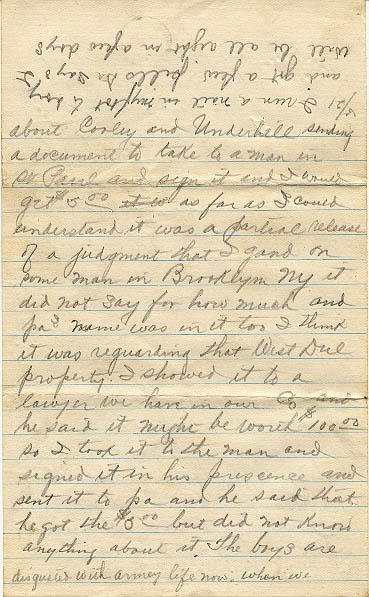 about Cooley and Underhill sending
a document to take to a man in
St Paul and sign it and I would
get $5 00 it w as far as I could
understand it was a partial release
of a judgment that I gand on
some man in Brooklyn Ny it
did not say for how much and
pa's name was in it too I think
it was reguarding that West Dul
property. I showed it to a
lawyer we have in our Co and
he said it might be worth $100 00
so I took it to the man and
signed it in his prescence and
sent it to pa and he said that
he got the $5 00 but did not know
anything about it. The boys are
disgusted with armey life now. when we
5/21 I run a nail in my foot to day
and got a few pills Dr says I
will be all right in a few days